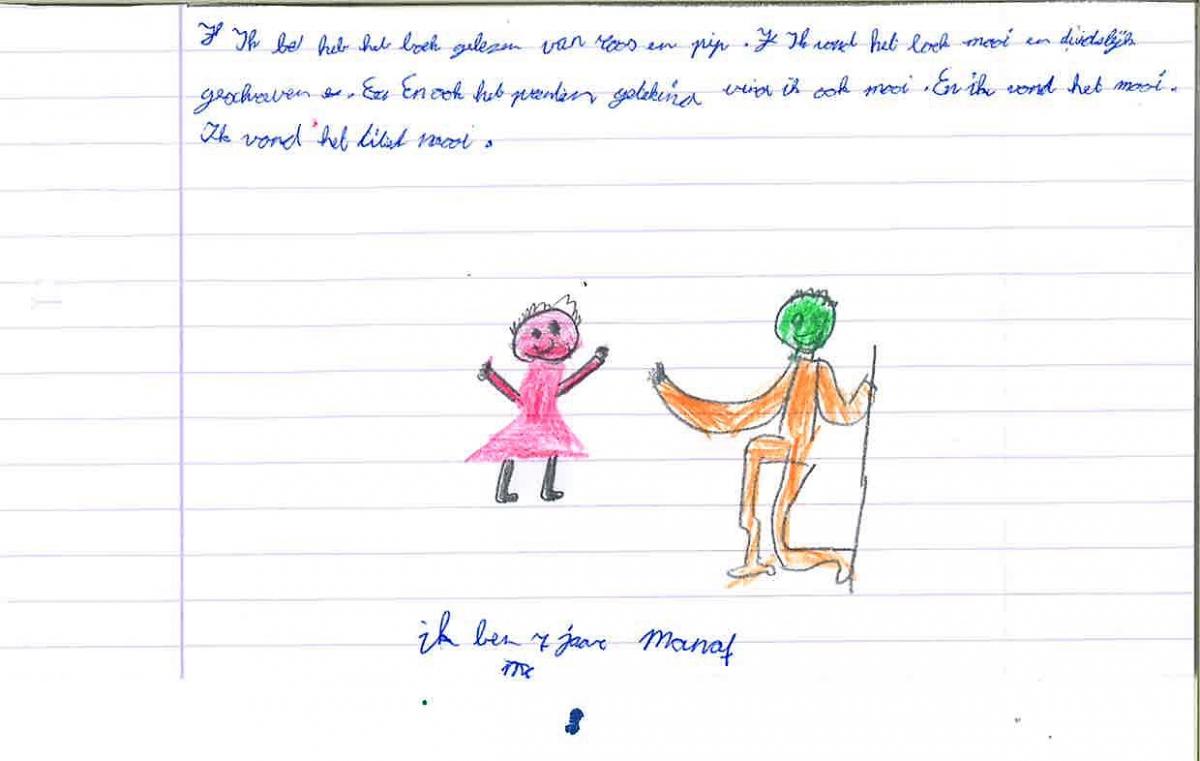 Ik heb het boek gelezen van roos en pip. Ik vond het boek mooi en duidelijk
geschreven. En ook het prenten getekind vind ik ook mooi. En ik vond het mooi.
Ik vond het mooi.
ik ben 7 jaar Manaf